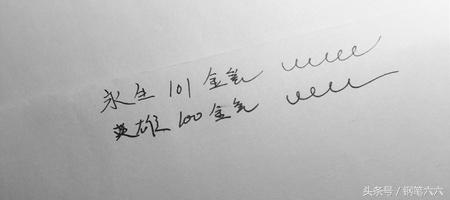 永生 101 金笔
英雄 100 金笔
头条号/钢笔六六